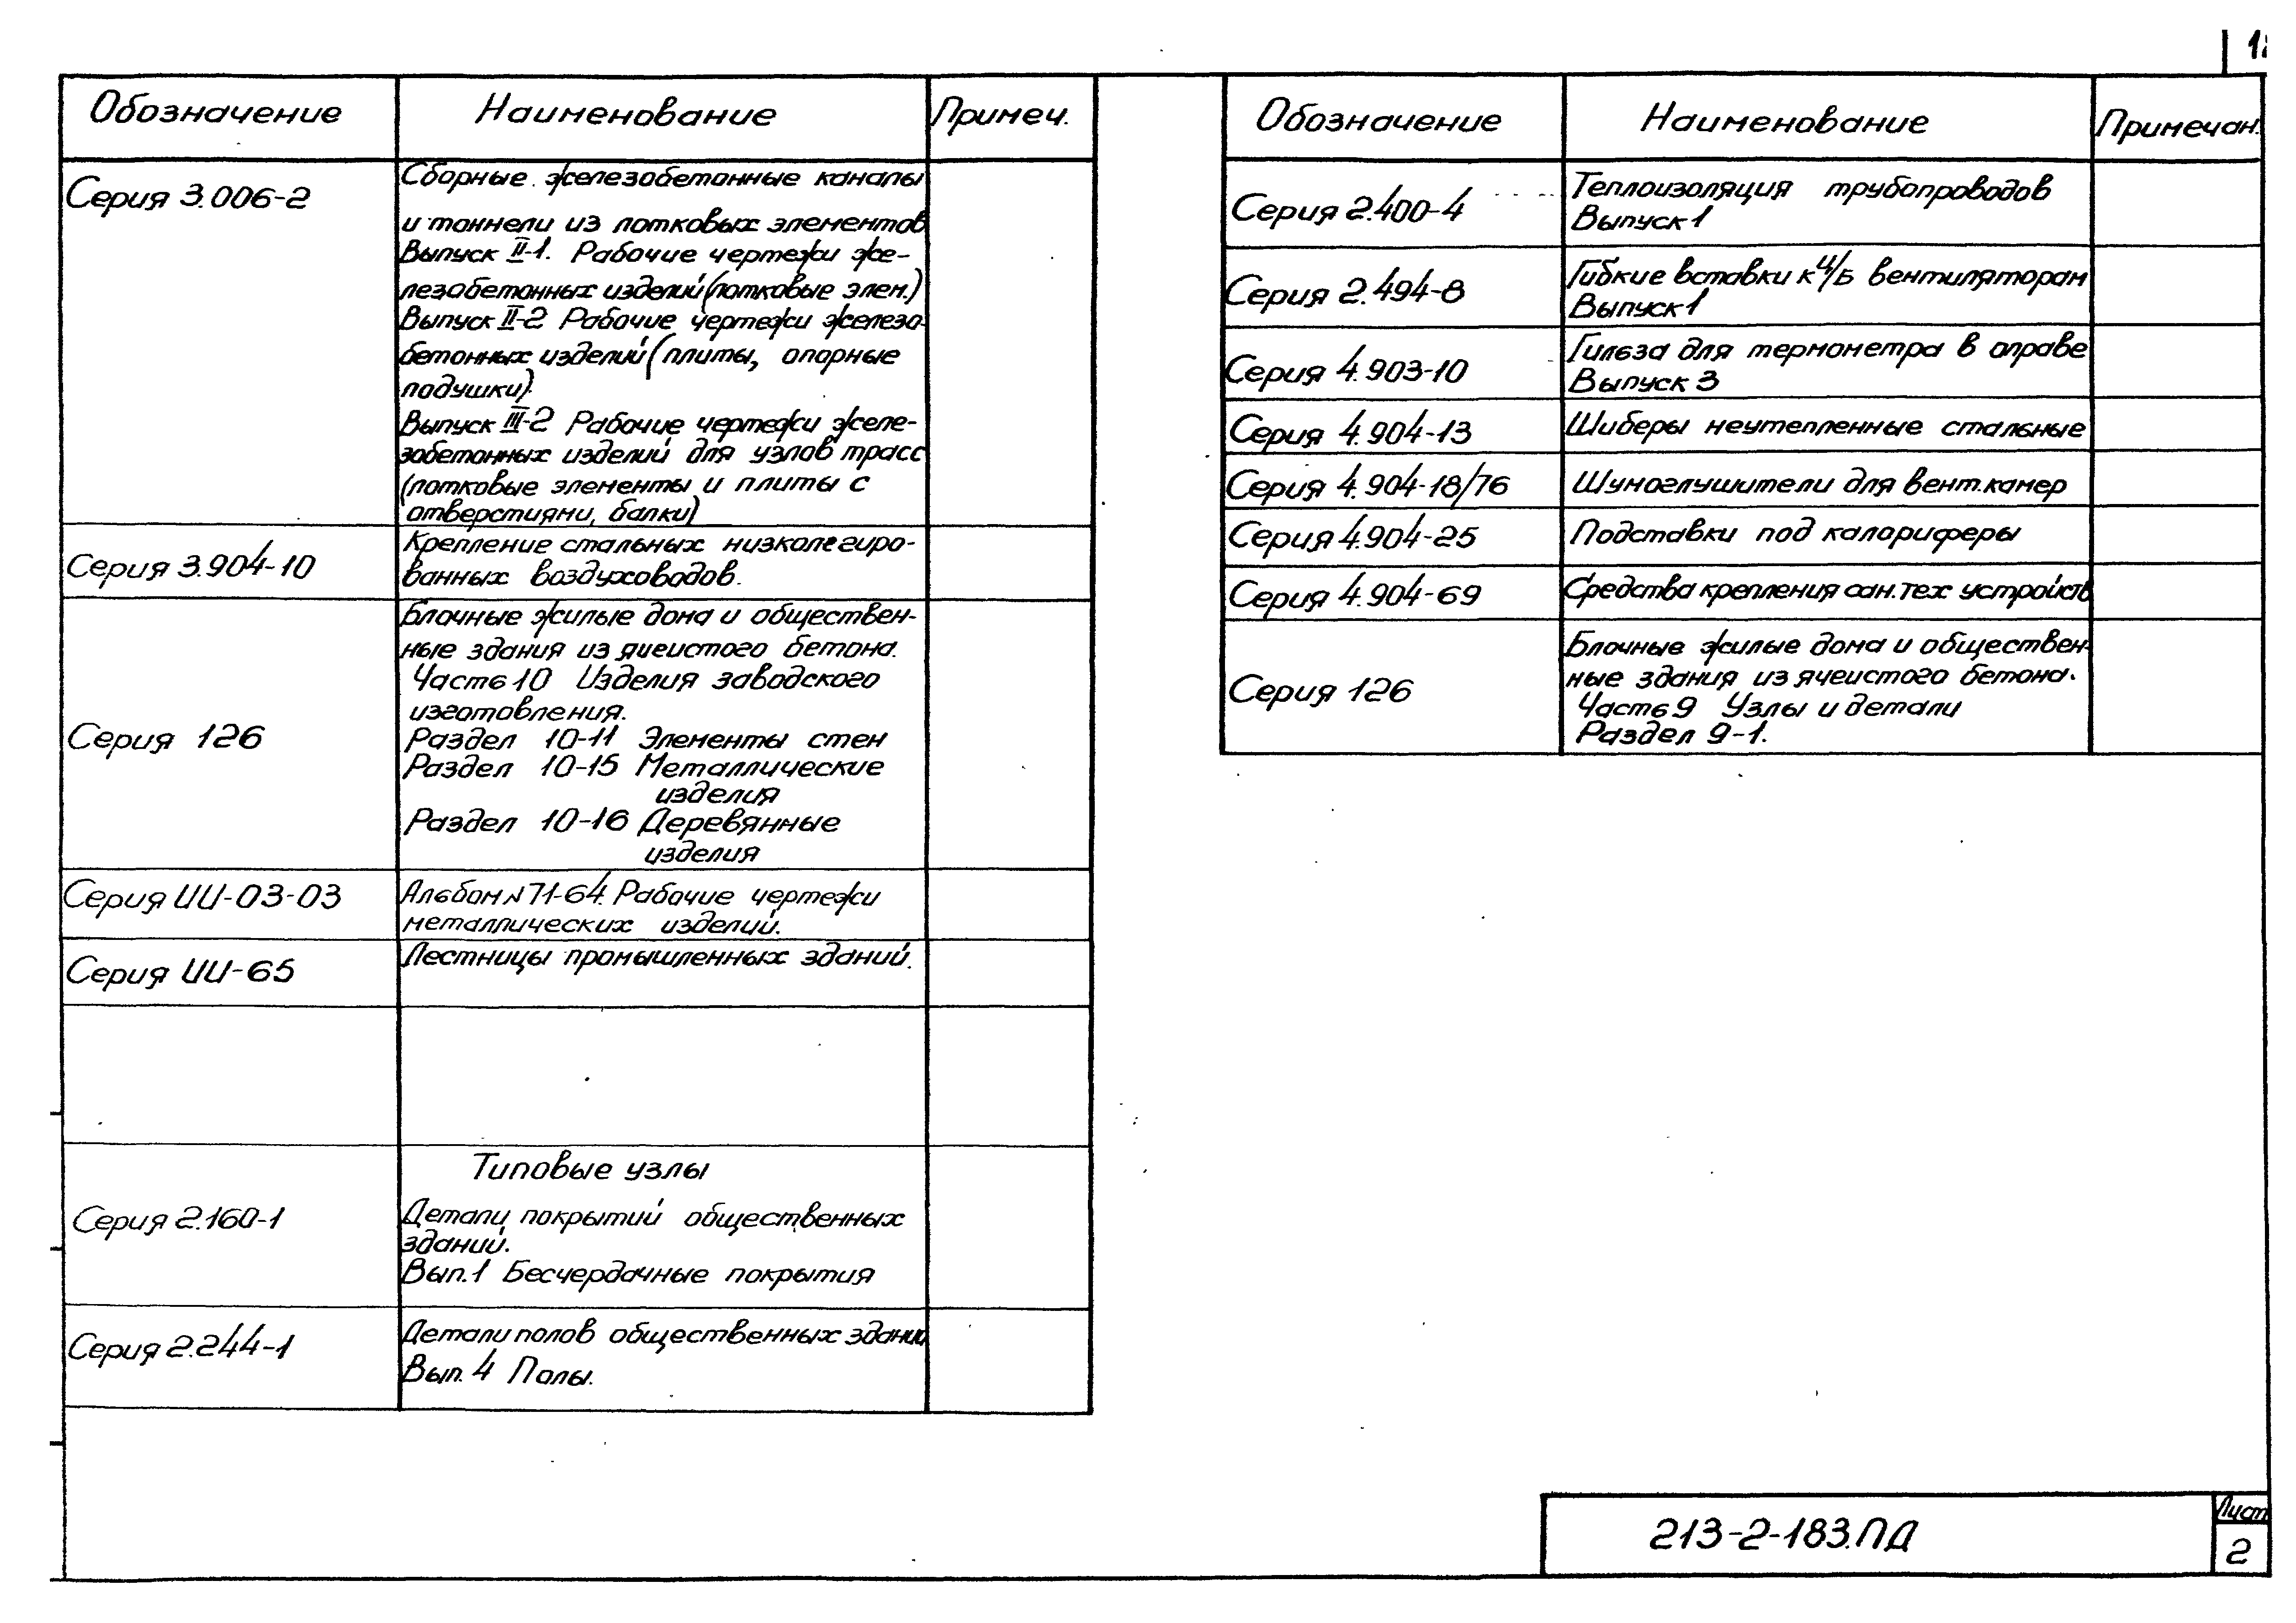 Обозначение Наименование Примеч.
Серия 3.006-2
Сборные железобетонные каналы
и тоннели из лотковых элементов
Выпуск II-1. Рабочие чертежи же-
лезобетонных изделий (лотковые элем.)
Выпуск II-2 Рабочие чертежи железо-
бетонных изделий (плиты, опорные
подушки).
Выпуск III-2 Рабочие чертежи желе-
зобетонных изделий для узлов трасс
(лотковые элементы и плиты с
отверстиями, балки)
Серия 3.904-10
Крепление стальных низколегиро-
ванных воздуховодов.
Серия 126
Блочные жилые дома и обществен-
ные здания из ячеистого бетона.
Часть 10 Изделия заводского
изготовления.
Раздел 10-11 Элементы стен
Раздел 10-15 Металлические
изделия
Раздел 10-16 Деревянные
изделия
Серия ИИ-03-03
Альбом №71-64. Рабочие чертежи
металлических изделий.
Серия ИИ-65
Лестницы промышленных зданий.
Типовые узлы
Серия 2.160-1
Детали покрытий общественных
зданий.
Вып. 1 Бесчердачные покрытия
Серия 2.244-1
Детали полов общественных здании
Вып. 4 Полы.
Обозначение Наименование Примечан.
Серия 2.400-4
Теплоизоляция трубопроводов
Выпуск 1
Серия 2.494-8
Гибкие вставки к ц/б вентиляторам
Выпуск 1
Серия 4.903-10
Гильза для термометра в оправе
Выпуск 3
Серия 4.904-13 Шиберы неутепленные стальные
Серия 4.904-18/76 Шумоглушители для вент.камер
Серия 4.904-25 Подставки под калориферы
Серия 4.904-69 Средства крепления сан.тех устройств
Серия 126
Блочные жилые дома и обществен-
ные здания из ячеистого бетона.
Часть 9 Узлы и детали
Раздел 9-1.
213-2-183.ПД
Лист
2